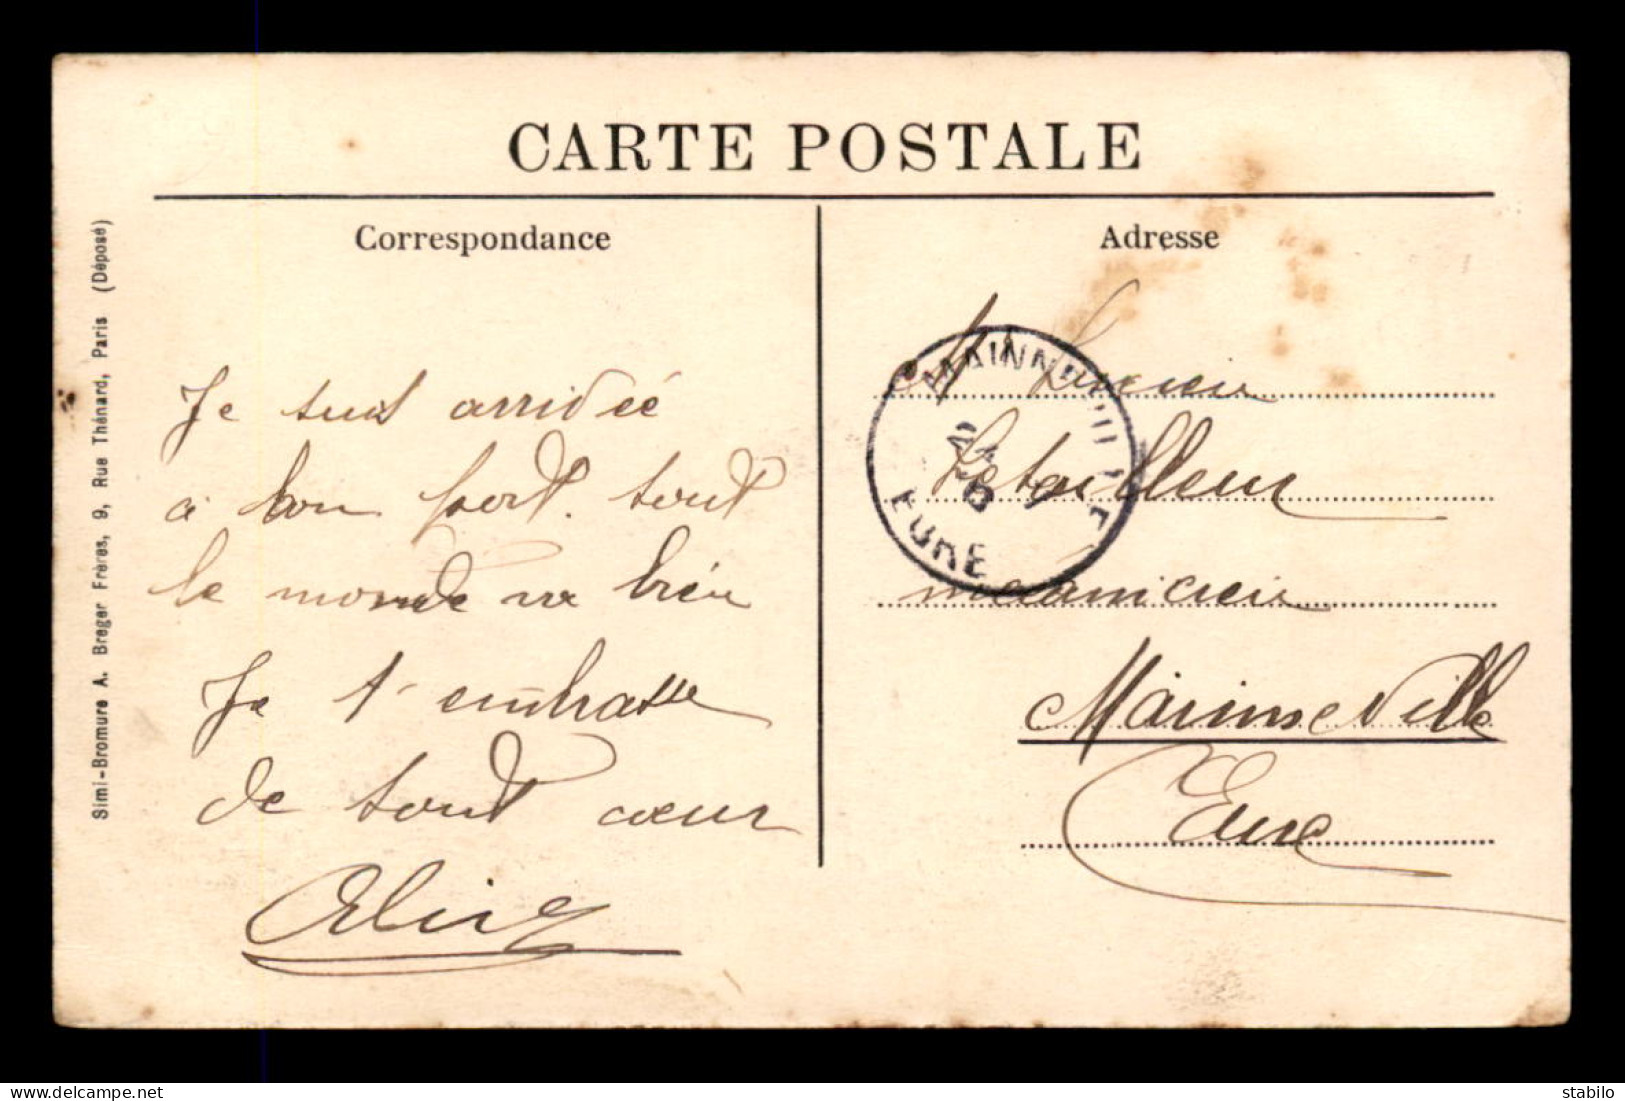 CARTE POSTALE
Correspondance
Je suis arridée
a bon port. tout
le monde va bien
Je t'embrasse
de tout cœur
Aline
Adresse
M Lucien
Letailleur
mécanicien
Mainneville
Eure
MAINNEVILLE
EURE
Simi-Bromure A. Breger Frères, 9, Rue Thénard, Paris (Déposé)
stabilo